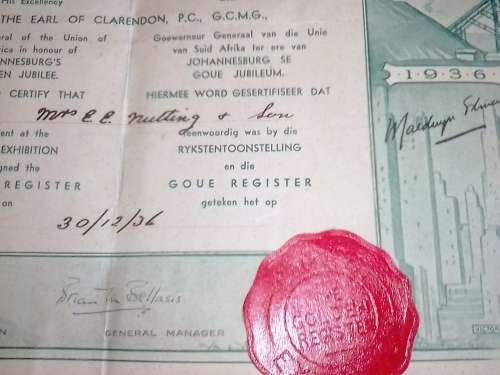 His Excellency
THE EARL OF CLARENDON, P.C., G.C.M.G.,
eral of the Union of
rica in honour of
HANNESBURG'S
EN JUBILEE.
Goewerneur Generaal van die Unie
van Suid Afrika ter ere van
JOHANNESBURG SE
GOUE JUBILEUM.
1936
CERTIFY THAT
HIERMEE WORD GESERTIFISEER DAT
Mrs E. E. Nutting & Son
ent at the
EXHIBITION
igned the
REGISTER
on
teenwoordig was by die
RYKSTENTOONSTELLING
en die
GOUE REGISTER
geteken het op
30/12/36
Maldwyn
Brian Bellasis
GENERAL MANAGER